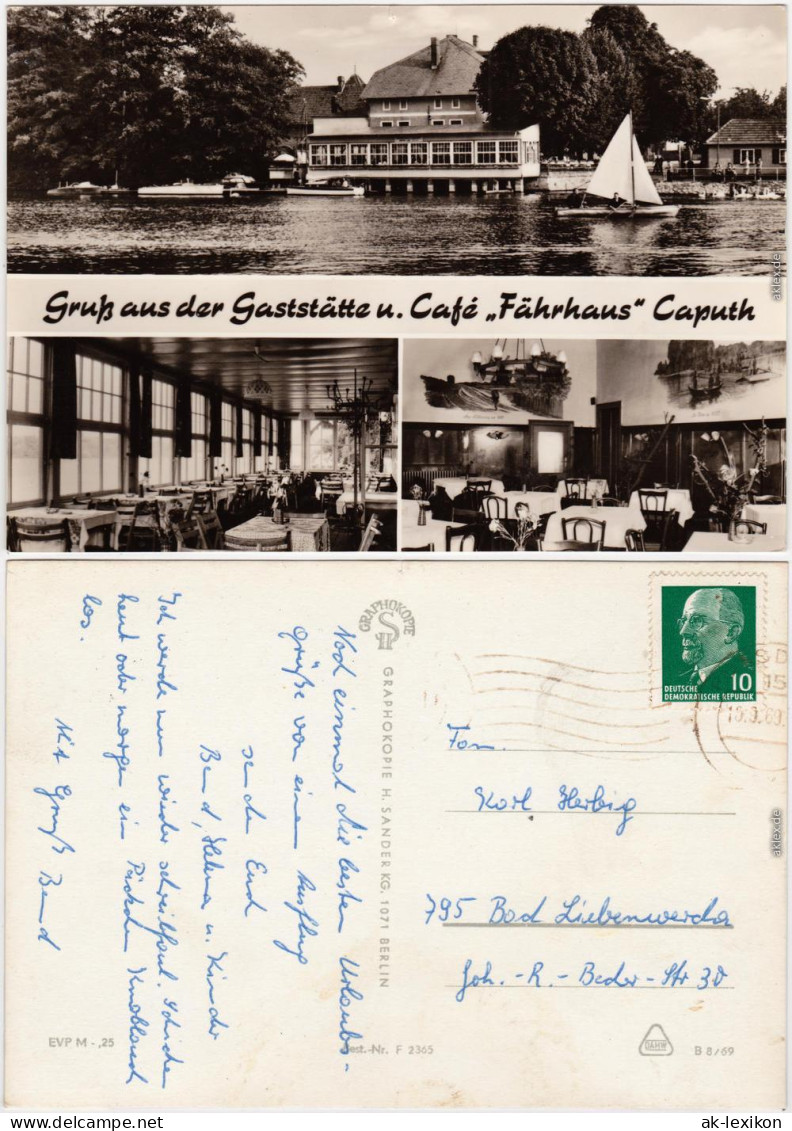 Gruß aus der Gaststätte u. Café „Fährhaus“ Caputh
aklex.de
GRAPHOKOPIE
GRAPHOKOPIE H. SANDER KG. 1071 BERLIN
Noch einmal die besten Urlaubs-
grüße von einem Ausflug
senden Euch
Bernd, Helma u. Kinder
Ich werde nun wieder schreibfaul. Schicken
heut oder morgen ein Päckchen Knoblauch
los.
Mit Gruß Bernd
EVP M -,25
Best.-Nr. F 2365
10
DEUTSCHE
DEMOKRATISCHE REPUBLIK
Fam.
Karl Herbig
795 Bad Liebenwerda
Joh.-R.-Becher-Str 30
B 8/69
aklex.de
www.ak-lexikon.de